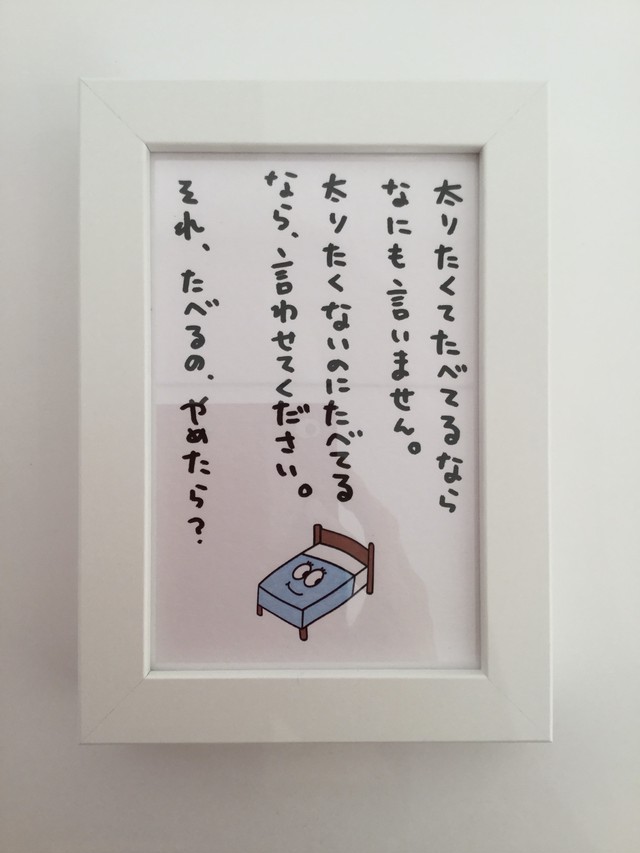 太りたくてたべてるなら
なにも言いません。
太りたくないのにたべてる
なら、言わせてください。
それ、たべるの、やめたら？